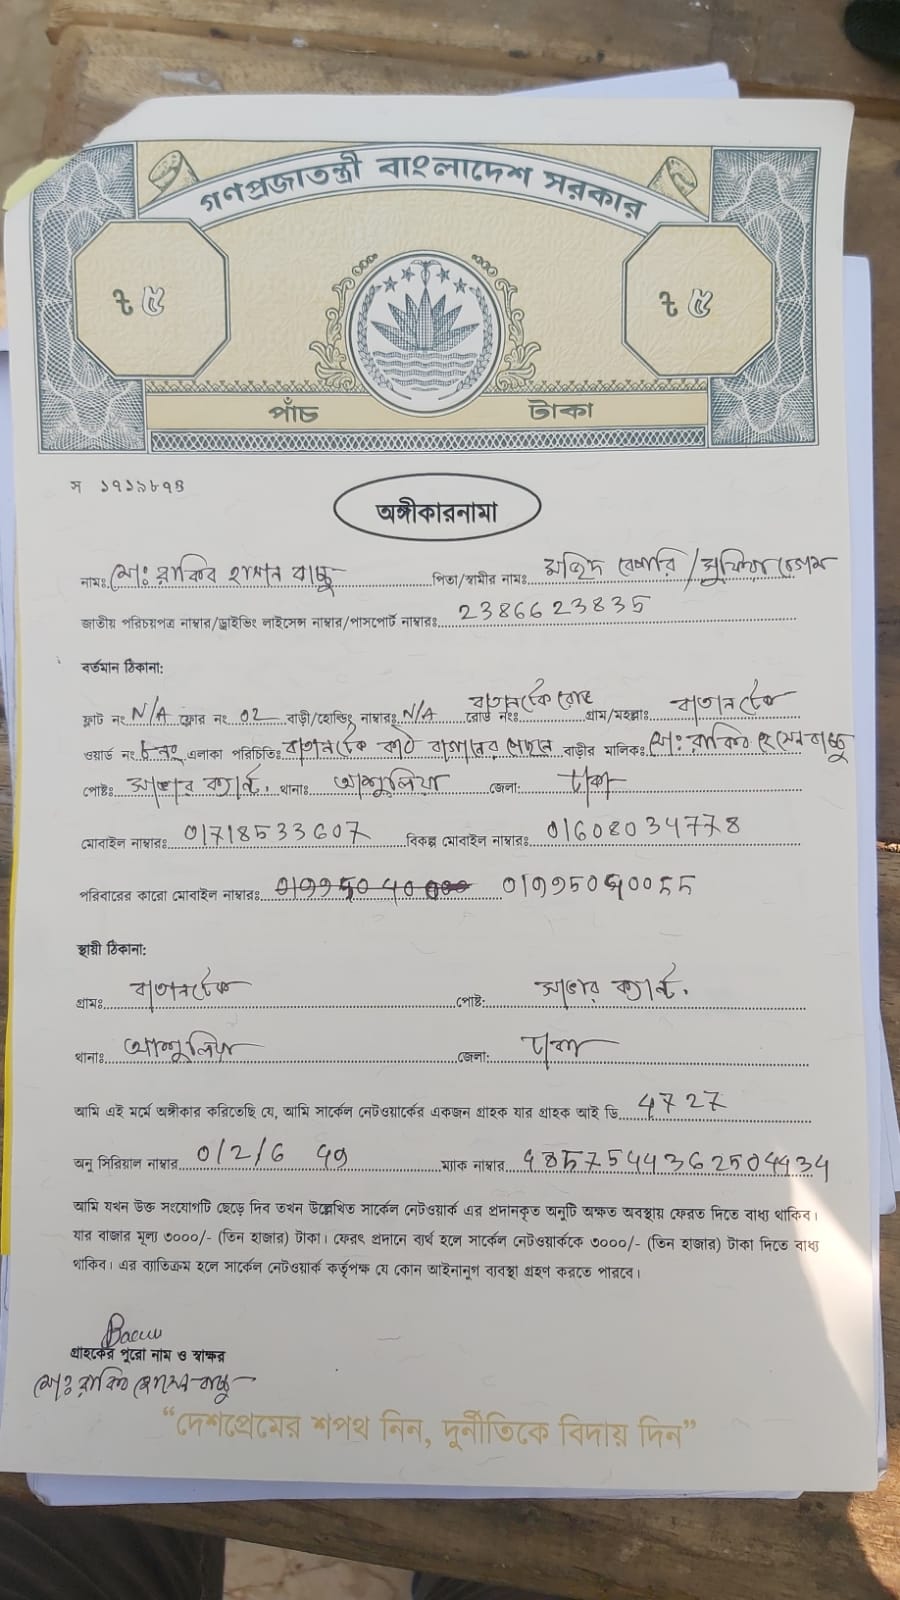 গণপ্রজাতন্ত্রী বাংলাদেশ সরকার
৳ ৫ ৳ ৫
পাঁচ টাকা
স ১৭১৯৮৭৪
অঙ্গীকারনামা
নামঃ মোঃ রাকিব হাসান বাচ্চু পিতা/স্বামীর নামঃ মজিদ বেপারি / সুফিয়া বেগম
জাতীয় পরিচয়পত্র নাম্বার/ড্রাইভিং লাইসেন্স নাম্বার/পাসপোর্ট নাম্বারঃ 2386623835
বর্তমান ঠিকানা:
ফ্লাট নং N/A ফ্লোর নং 02 বাড়ী/হোল্ডিং নাম্বারঃ N/A রোড নংঃ বাতানটেক রোড গ্রাম/মহল্লাঃ বাতানটেক
ওয়ার্ড নং ৮নং এলাকা পরিচিতিঃ বাতানটেক কাঠ বাগানের পেছনে বাড়ীর মালিকঃ মোঃ রাকিব হোসেন বাচ্চু
পোষ্টঃ সাভার ক্যান্ট. থানাঃ আশুলিয়া জেলা: ঢাকা
মোবাইল নাম্বারঃ 01718533607 বিকল্প মোবাইল নাম্বারঃ 01608034778
পরিবারের কারো মোবাইল নাম্বারঃ
স্থায়ী ঠিকানা:
গ্রামঃ বাতানটেক পোষ্ট: সাভার ক্যান্ট.
থানাঃ আশুলিয়া জেলা: ঢাকা
আমি এই মর্মে অঙ্গীকার করিতেছি যে, আমি সার্কেল নেটওয়ার্কের একজন গ্রাহক যার গ্রাহক আই ডি 4727
অনু সিরিয়াল নাম্বার 0/2/6 ম্যাক নাম্বার
আমি যখন উক্ত সংযোগটি ছেড়ে দিব তখন উল্লেখিত সার্কেল নেটওয়ার্ক এর প্রদানকৃত অনুটি অক্ষত অবস্থায় ফেরত দিতে বাধ্য থাকিব।
যার বাজার মূল্য ৩০০০/- (তিন হাজার) টাকা। ফেরৎ প্রদানে ব্যর্থ হলে সার্কেল নেটওয়ার্ককে ৩০০০/- (তিন হাজার) টাকা দিতে বাধ্য
থাকিব। এর ব্যাতিক্রম হলে সার্কেল নেটওয়ার্ক কর্তৃপক্ষ যে কোন আইনানুগ ব্যবস্থা গ্রহণ করতে পারবে।
গ্রাহকের পুরো নাম ও স্বাক্ষর
মোঃ রাকিব হোসেন বাচ্চু
“দেশপ্রেমের শপথ নিন, দুর্নীতিকে বিদায় দিন”